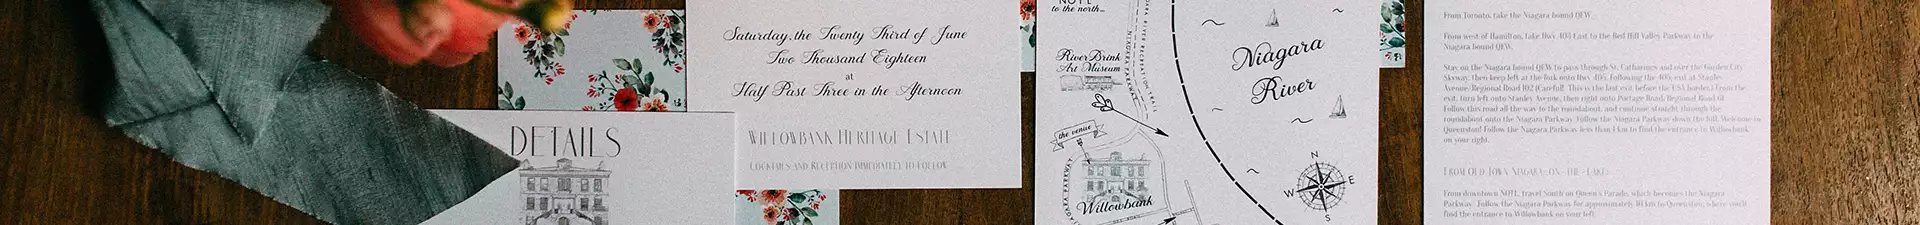 Saturday, the Twenty Third of June
Two Thousand Eighteen
at
Half Past Three in the Afternoon
Willowbank Heritage Estate
Cocktails and Reception immediately to follow
DETAILS
NOTL
to the north...
RiverBrink
Art Museum
NIAGARA PARKWAY
NIAGARA RIVER RECREATIONAL TRAIL
Niagara
River
the venue
Willowbank
NIAGARA PARKWAY
N
W
E
S
From Toronto, take the Niagara bound QEW.
From west of Hamilton, take Hwy 403 East to the Red Hill Valley Parkway to the
Niagara bound QEW.
Stay on the Niagara bound QEW to pass through St. Catharines and over the Garden City
Skyway, then keep left at the fork onto Hwy 405. Following the 405, exit at Stanley
Avenue/Regional Road 102 (Careful! This is the last exit before the USA border.) From the
exit, turn left onto Stanley Avenue, then right onto Portage Road/Regional Road 61.
Follow this road all the way to the roundabout, and continue straight through the
roundabout onto the Niagara Parkway. Follow the Niagara Parkway down the hill. Welcome to
Queenston! Follow the Niagara Parkway less than 1 km to find the entrance to Willowbank
on your right.
From Old Town Niagara-on-the-Lake:
From downtown NOTL, travel South on Queen's Parade, which becomes the Niagara
Parkway. Follow the Niagara Parkway for approximately 10 km to Queenston, where you'll
find the entrance to Willowbank on your left.